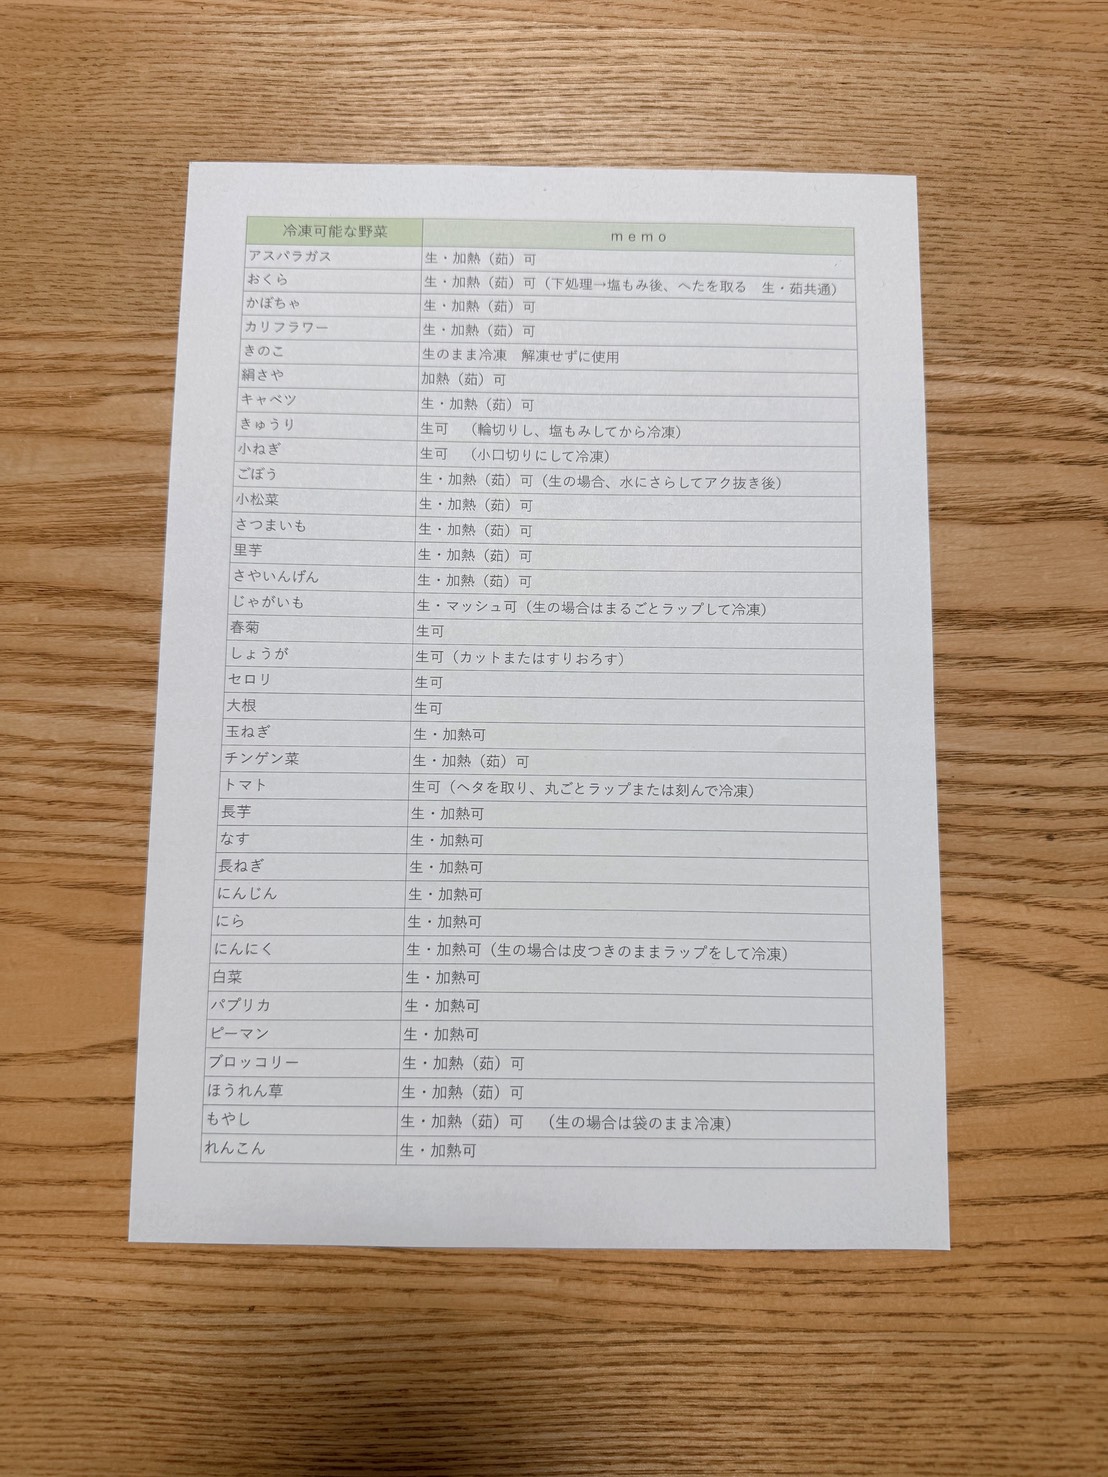 冷凍可能な野菜 memo
アスパラガス 生・加熱（茹）可
おくら 生・加熱（茹）可（下処理→塩もみ後、へたを取る　生・茹共通）
かぼちゃ 生・加熱（茹）可
カリフラワー 生・加熱（茹）可
きのこ 生のまま冷凍　解凍せずに使用
絹さや 加熱（茹）可
キャベツ 生・加熱（茹）可
きゅうり 生可　（輪切りし、塩もみしてから冷凍）
小ねぎ 生可　（小口切りにして冷凍）
ごぼう 生・加熱（茹）可（生の場合、水にさらしてアク抜き後）
小松菜 生・加熱（茹）可
さつまいも 生・加熱（茹）可
里芋 生・加熱（茹）可
さやいんげん 生・加熱（茹）可
じゃがいも 生・マッシュ可（生の場合はまるごとラップして冷凍）
春菊 生可
しょうが 生可（カットまたはすりおろす）
セロリ 生可
大根 生可
玉ねぎ 生・加熱可
チンゲン菜 生・加熱（茹）可
トマト 生可（ヘタを取り、丸ごとラップまたは刻んで冷凍）
長芋 生・加熱可
なす 生・加熱可
長ねぎ 生・加熱可
にんじん 生・加熱可
にら 生・加熱可
にんにく 生・加熱可（生の場合は皮つきのままラップをして冷凍）
白菜 生・加熱可
パプリカ 生・加熱可
ピーマン 生・加熱可
ブロッコリー 生・加熱（茹）可
ほうれん草 生・加熱（茹）可
もやし 生・加熱（茹）可　（生の場合は袋のまま冷凍）
れんこん 生・加熱可